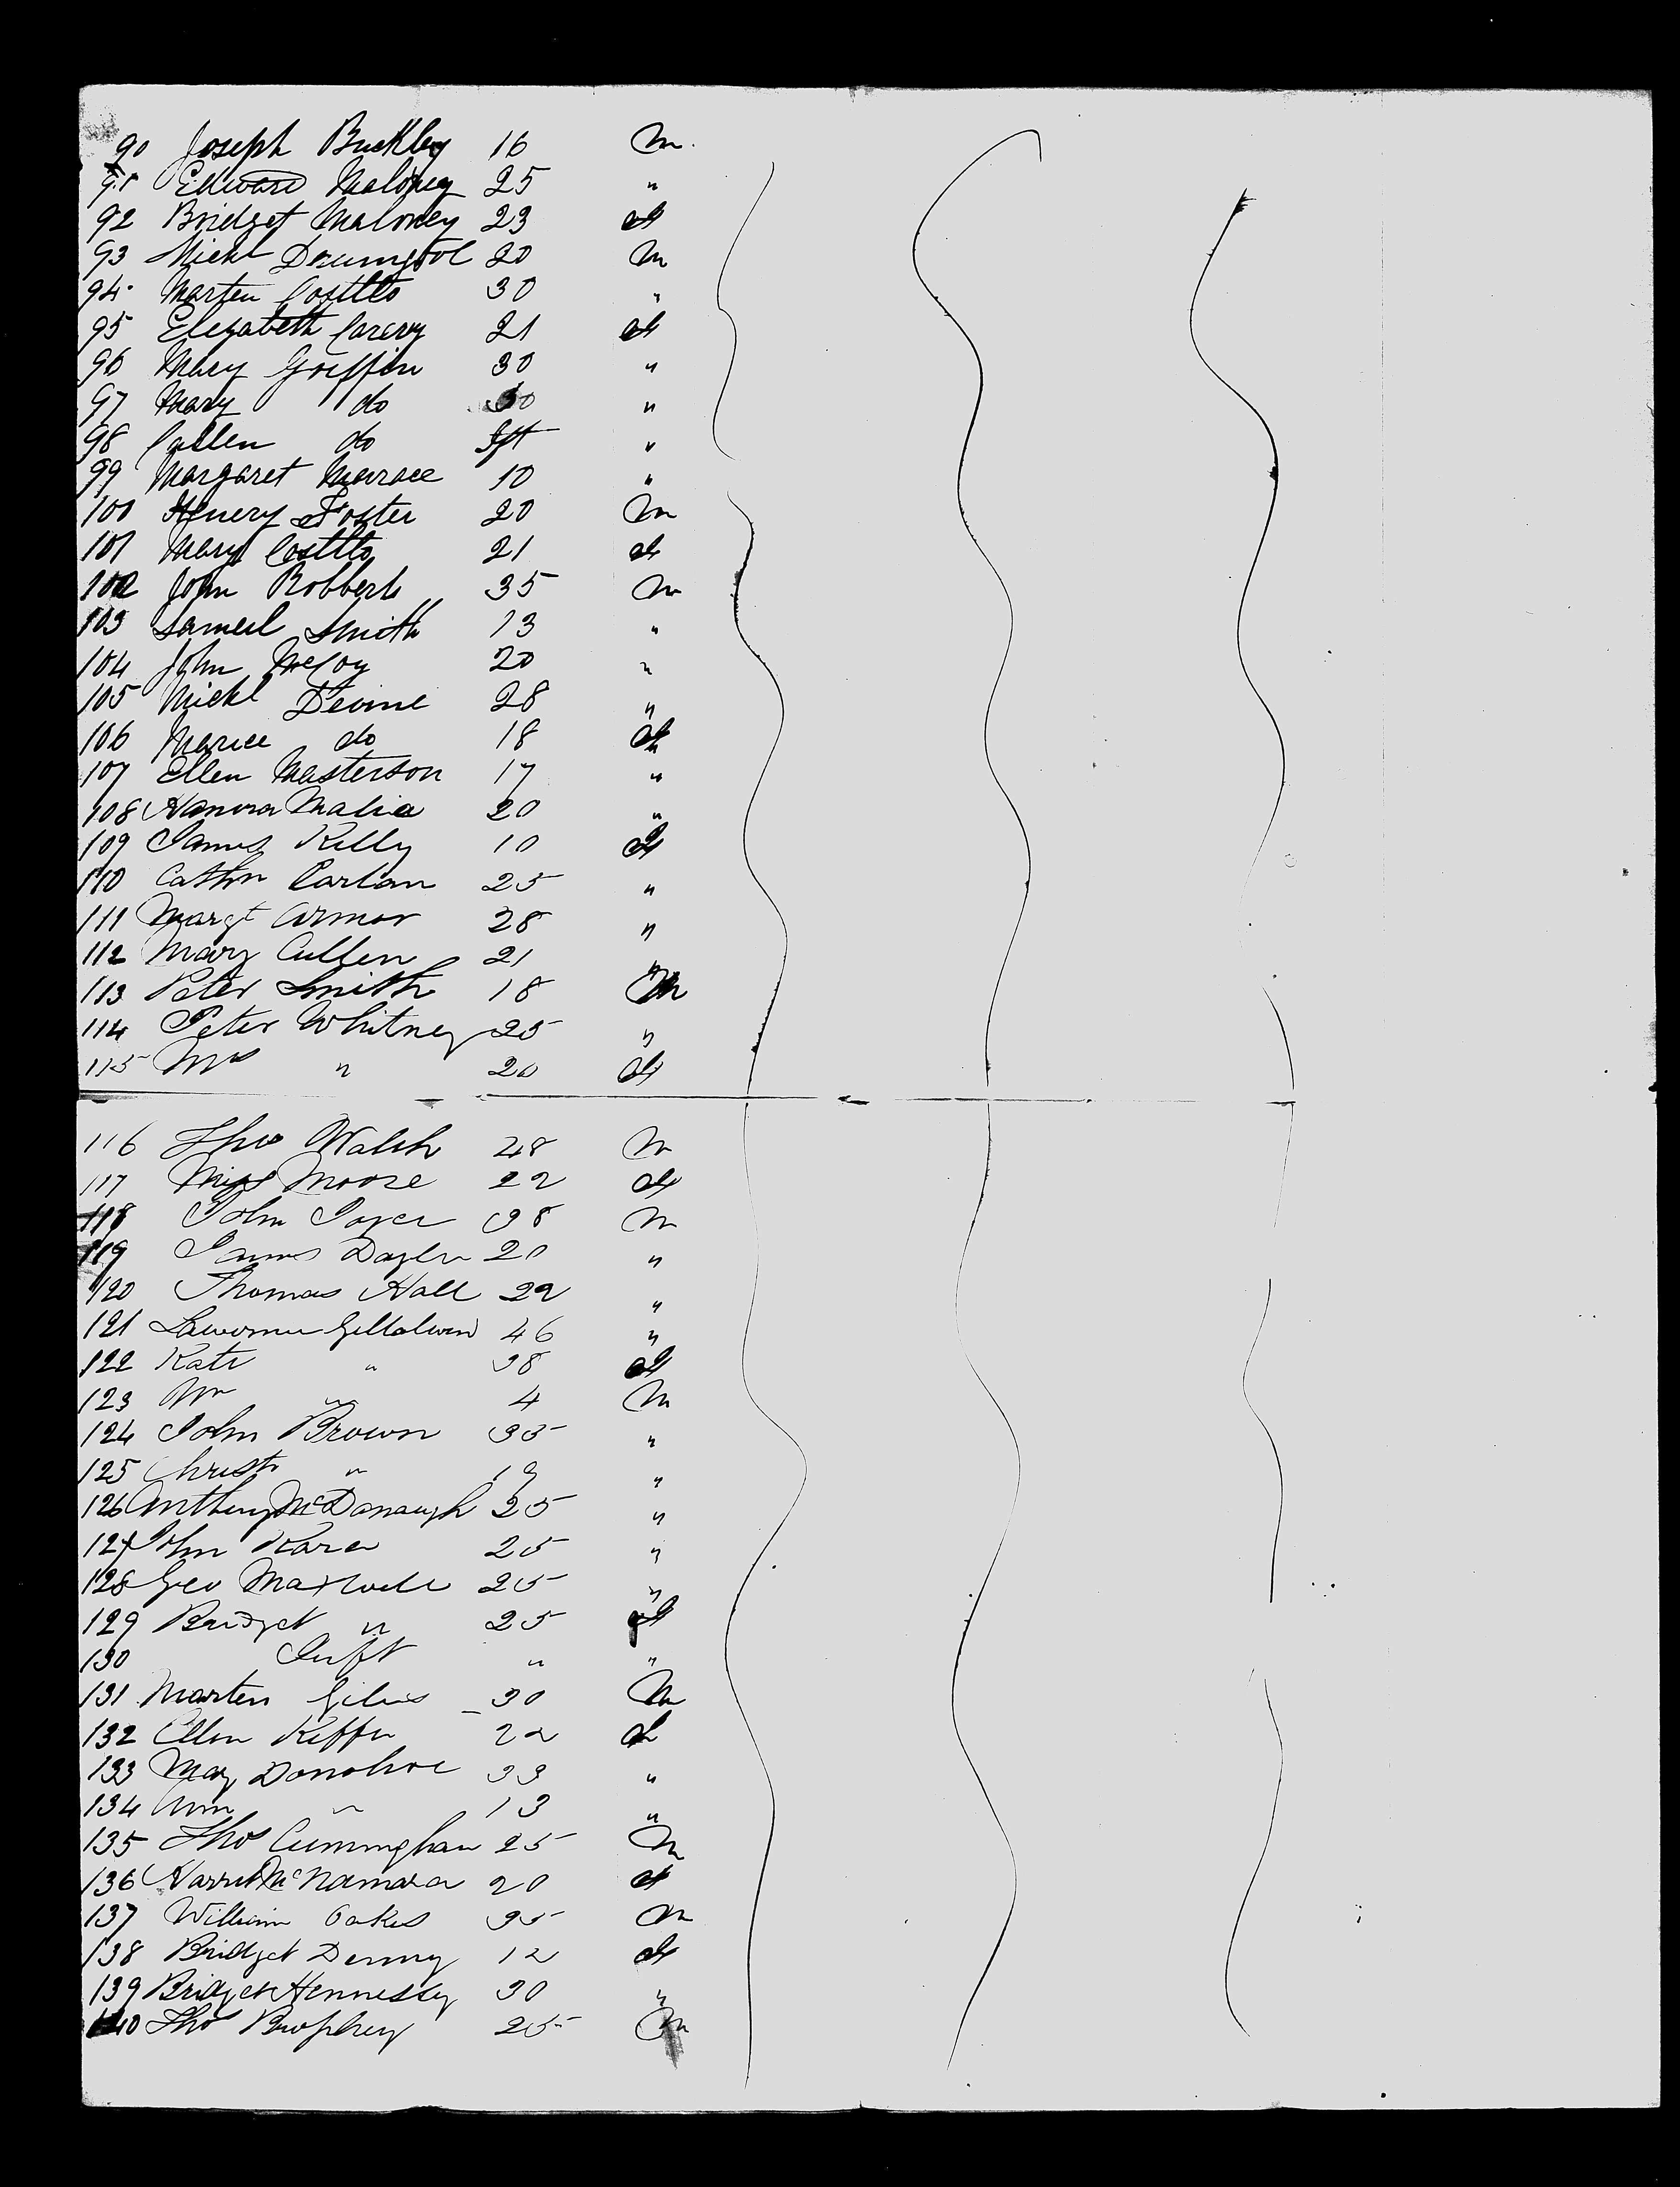 90 Joseph Buckley 16 M
91 Edward Maloney 25 "
92 Bridget Maloney 23 F
93 Michl 20 M
94 Marten Costtlo 30 "
95 Elezabeth Carery 21 F
96 Mary Griffin 30 "
97 Mary do "
98 do Ift "
99 Margaret 10 "
100 Henery Foster 20 M
101 Mary Costtlo 21 F
102 John Robberts 35 M
103 Samuel Smith 13 "
104 John McCoy 20 "
105 Michl Devine 28 "
106 Mariee do 18 F
107 Ellen Masterson 17 "
108 Hanora Malia 20 "
109 James Kelly 10 F
110 Cathn Carlan 25 "
111 Margt Armor 28 "
112 Mary Cullen 21 "
113 Peter Smith 18 M
114 Peter Whitney 25 "
115 Mrs " 20 F
116 Thos Walsh 28 M
117 Miss Moore 22 F
118 John Joyce 38 M
119 James 20 "
120 Thomas Hall 22 "
121 46 "
122 Kate " 38 F
123 Wm " 4 M
124 John Brown 35 "
125 Christr " 19 "
126 Anthony McDonaugh 25 "
127 John 25 "
128 Geo Maxwell 25 "
129 Bridget " 25 F
130 Inft " "
131 Marten 30 M
132 Ellen 22 F
133 Mary Donohoe 33 "
134 Ann " 13 "
135 Thos Cunningham 25 M
136 McNamara 20 F
137 William Oakes 35 M
138 Bridget Denny 12 F
139 Bridget Hennessy 30 "
140 Thos Brophey 25 M